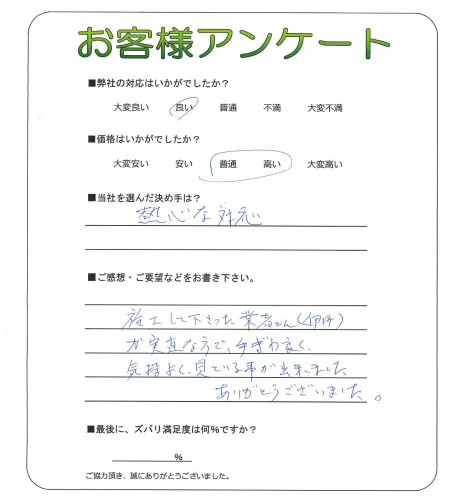 お客様アンケート
■弊社の対応はいかがでしたか?
大変良い 良い 普通 不満 大変不満
■価格はいかがでしたか?
大変安い 安い 普通 高い 大変高い
■当社を選んだ決め手は?
熱心な対応
■ご感想・ご要望などをお書き下さい。
施工して下さった業者さん(伊丹)
が実直な方で、手ぎわ良く、
気持よく見ている事が出来ました
ありがとうございました。
■最後に、ズバリ満足度は何%ですか?
%
ご協力頂き、誠にありがとうございました。